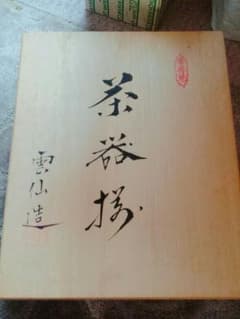 茶器揃
雲仙造